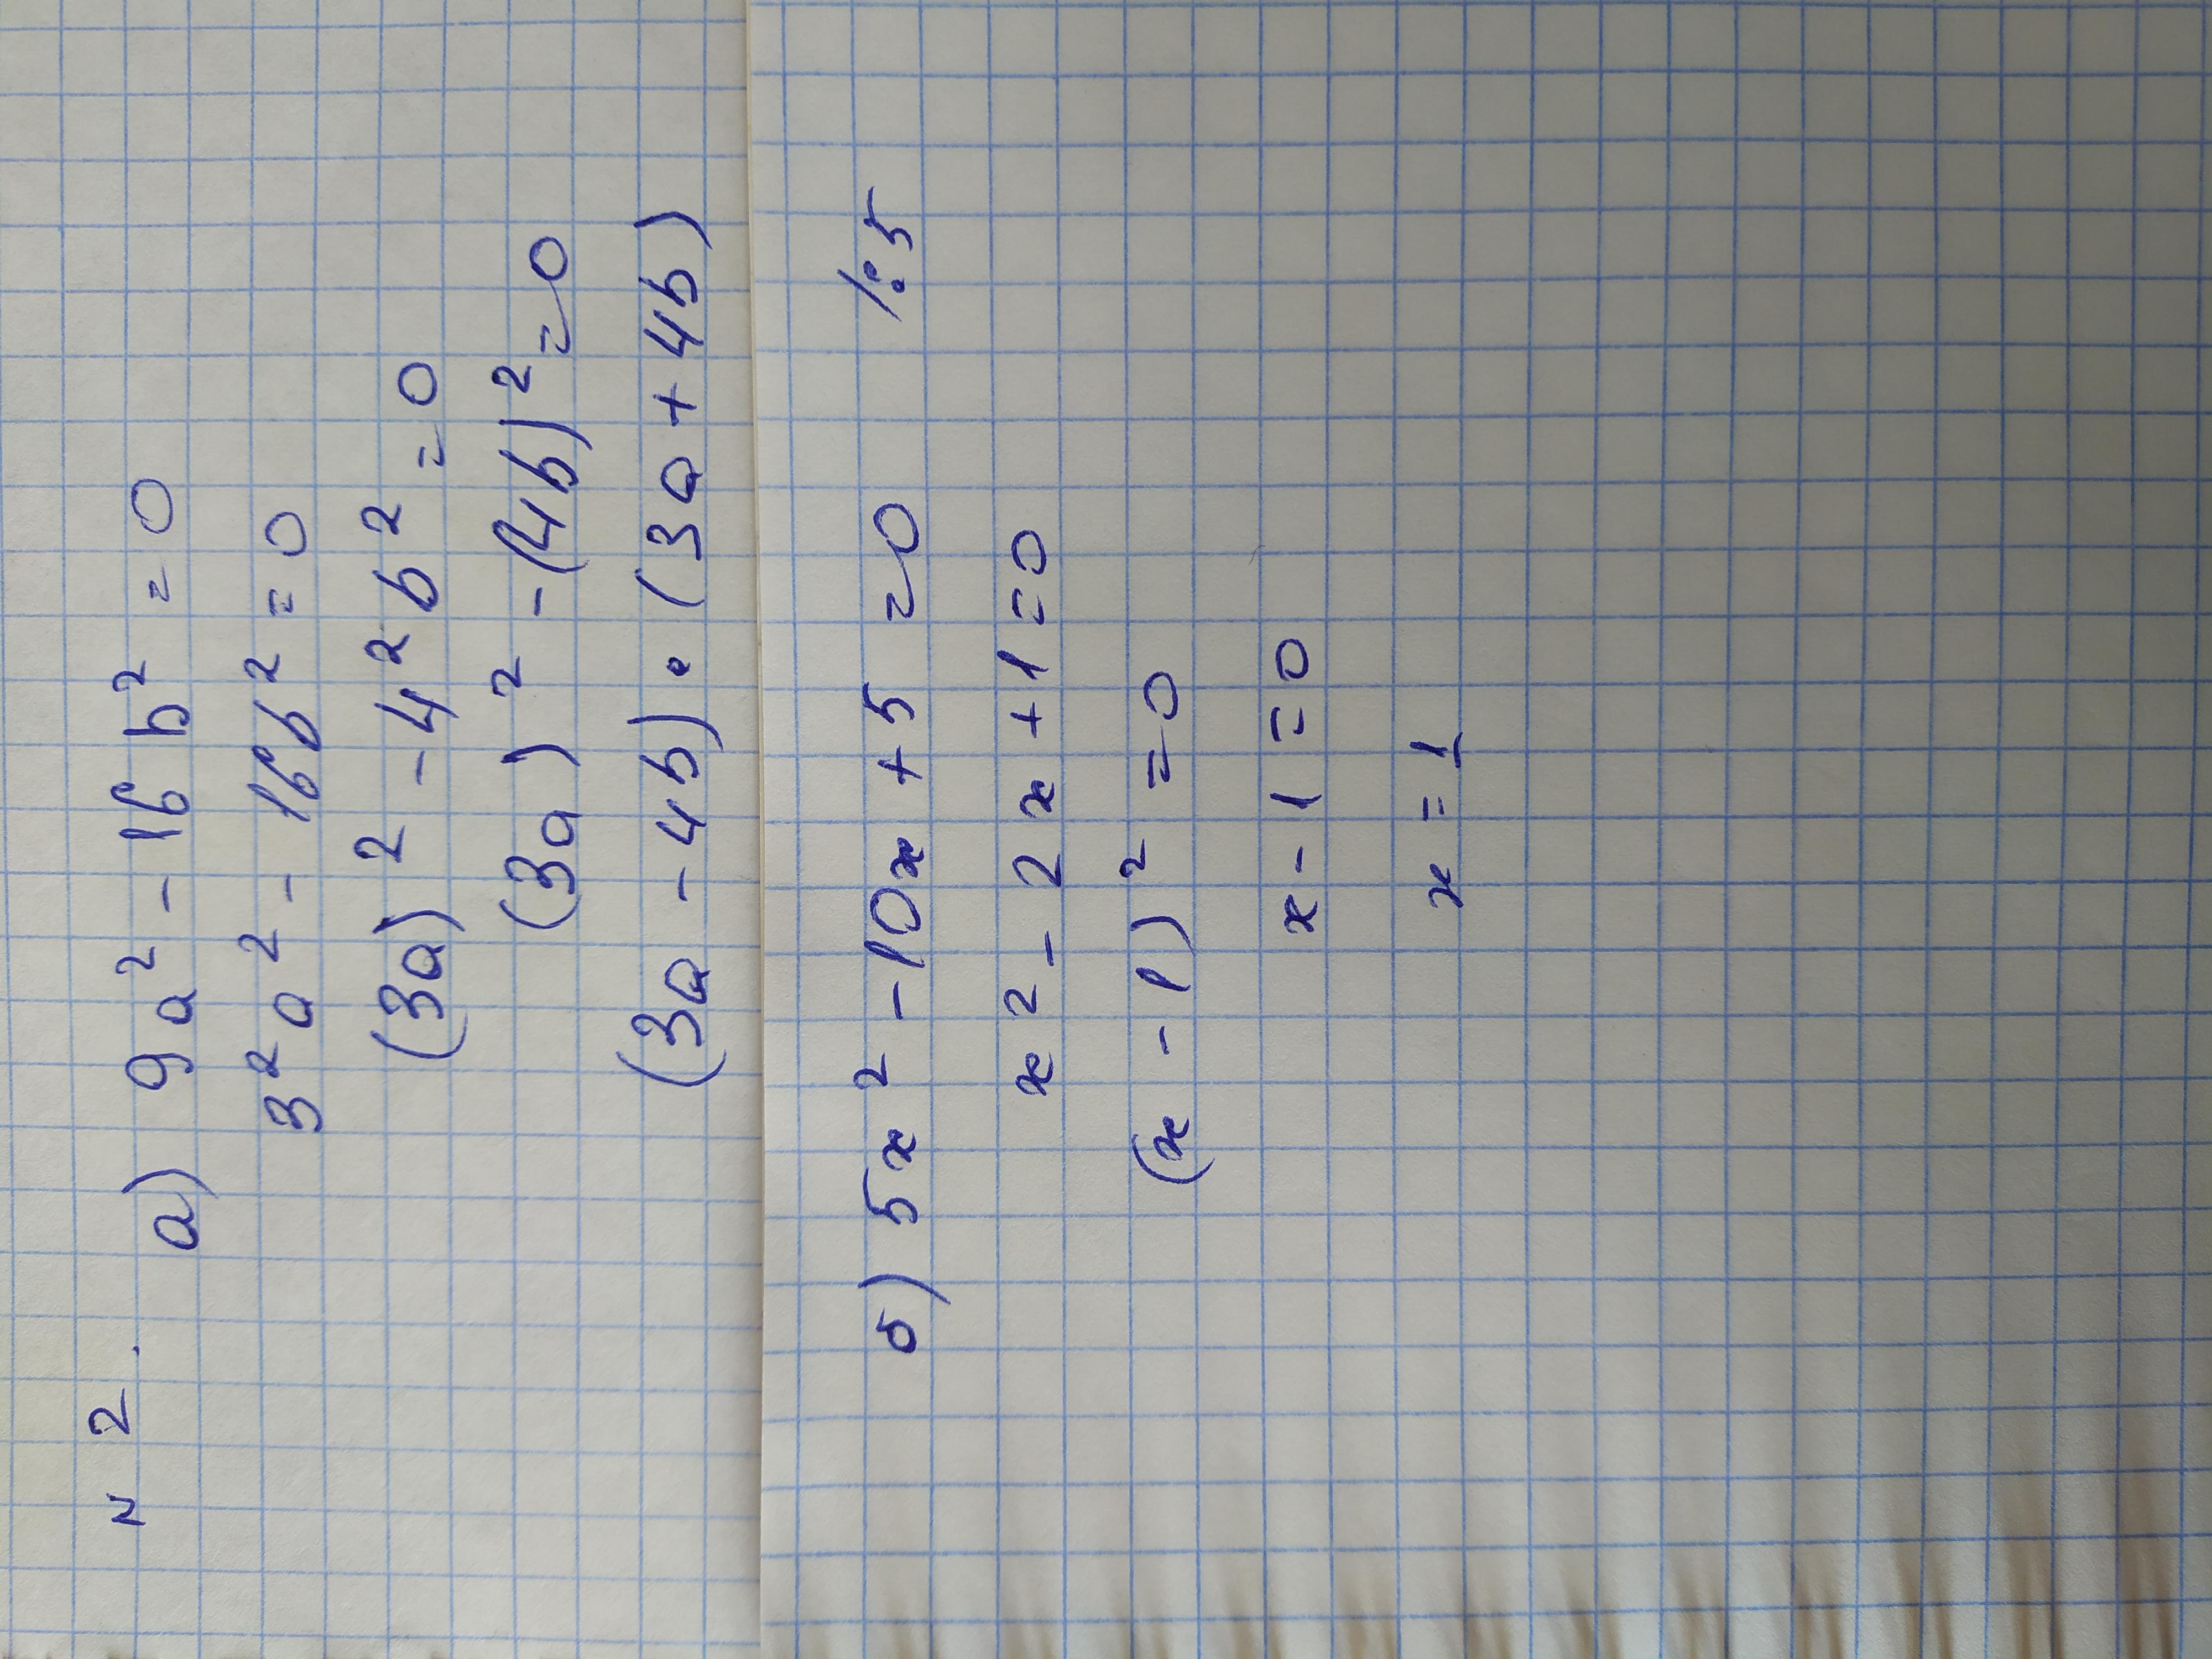 N 2.
а) 9a² - 16b² = 0
3²a² - 16b² = 0
(3a)² - 4²b² = 0
(3a)² - (4b)² = 0
(3a - 4b) · (3a + 4b)
б) 5x² - 10x + 5 = 0 /:5
x² - 2x + 1 = 0
(x - 1)² = 0
x - 1 = 0
x = 1